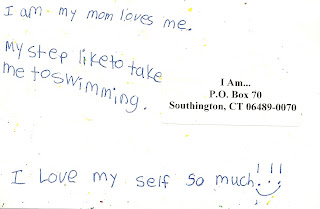 I am my mom loves me.
my step like to take
me to swimming.
I Am...
P.O. Box 70
Southington, CT 06489-0070
I Love my self so much